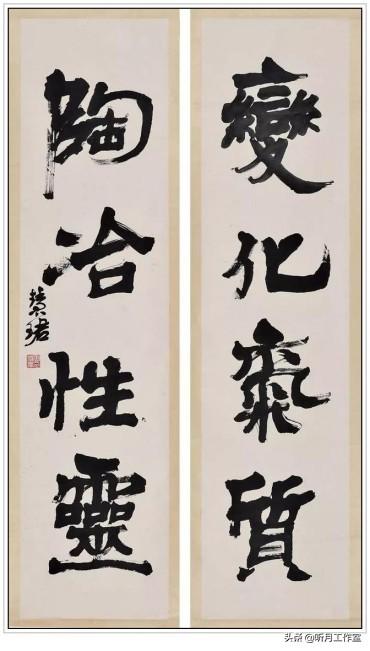 變化氣質
陶冶性靈
慧珺
头条 @听月工作室